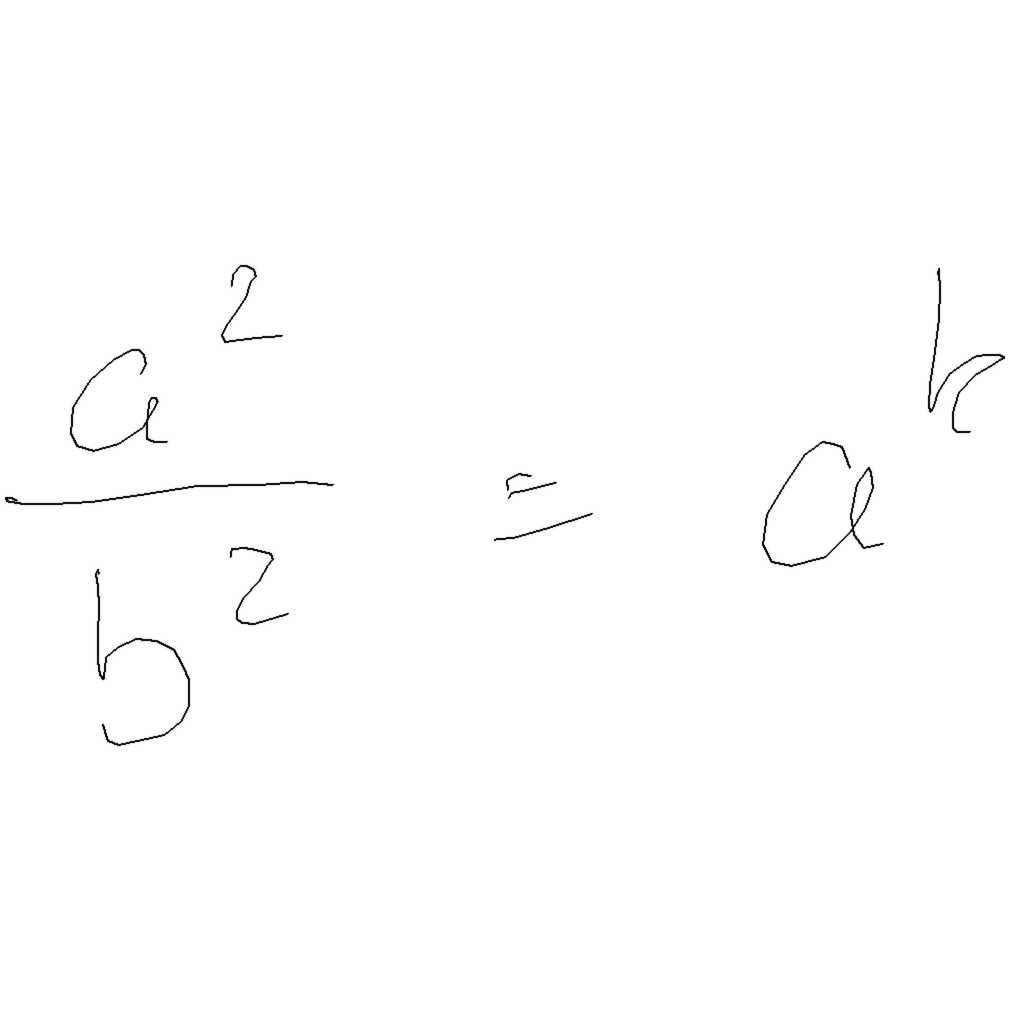 a²/b² = aᵏ